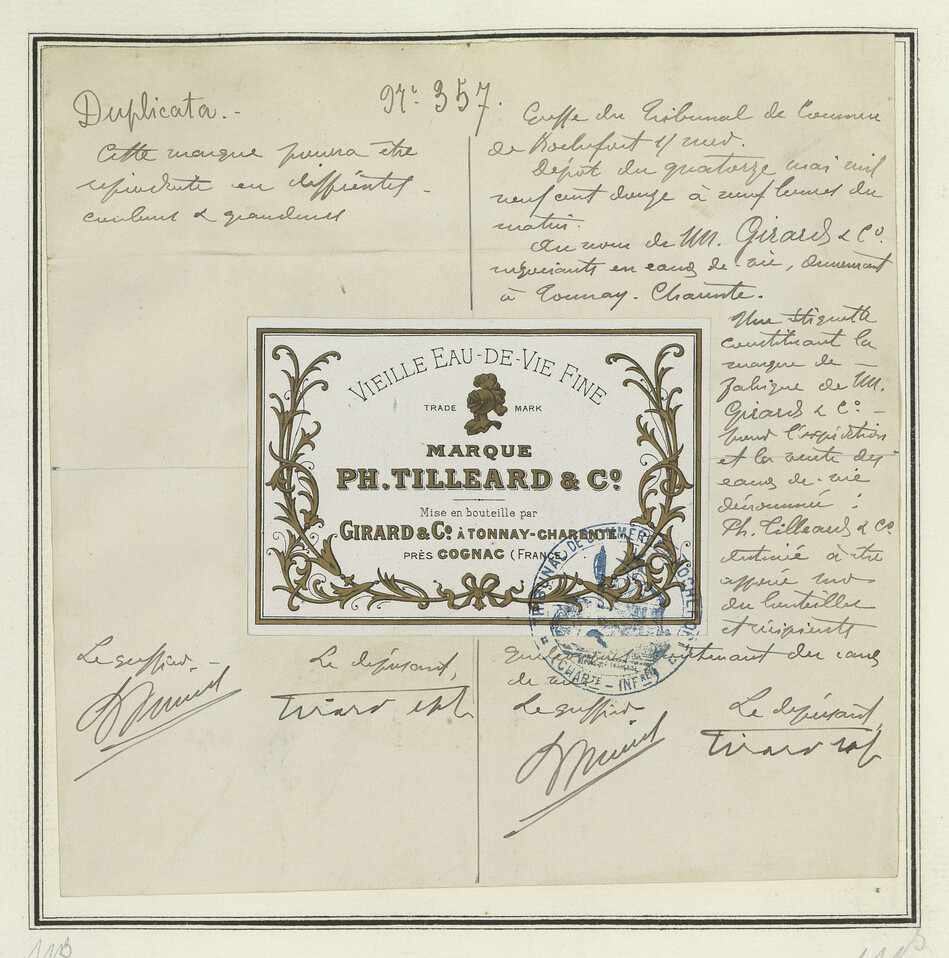 Duplicata.-
Cette marque pourra être
reproduite en différentes
couleurs & grandeurs
No. 357.
Greffe du Tribunal de Commerce
de Rochefort s/ mer.
Dépôt du quatorze mai mil
neuf cent douze à neuf heures du
matin.
Au nom de MM. Girard & Co.
négociants en eaux-de-vie, demeurant
à Tonnay-Charente.
Une étiquette
constituant la
marque de
fabrique de MM.
Girard & Co. -
pour l'expédition
et la vente des
eaux-de-vie
dénommée :
Ph. Tilleard & Co
destinée à être
apposée sur
des bouteilles
et récipients
quelconques contenant des eaux
de vie
VIEILLE EAU-DE-VIE FINE
TRADE MARK
MARQUE
PH. TILLEARD & Co.
Mise en bouteille par
GIRARD & Co. À TONNAY-CHARENTE
PRÈS COGNAC (FRANCE)
TRIBUNAL DE COMMERCE ROCHEFORT
(CHARTE - INFRE)
Le greffier -
Le déposant,
Girard
Le greffier
Le déposant,
Girard